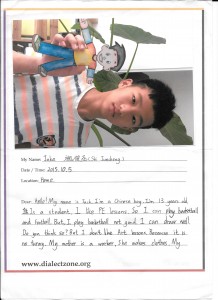 My Name: Jake (Shi Junhong)
Date / Time: 2015.10.5
Location: Home
Dear: Hello! My name is Jack. I'm a Chinese boy. I'm 13 years old
I'm a student. I like PE lessons. So I can play basketball
and football. But, I play basketball not good. I can draw well.
Do you think so? But I don't like Art lesson. Because it is
no funny. My mother is a worker, She makes clothes. My
www.dialectzone.org